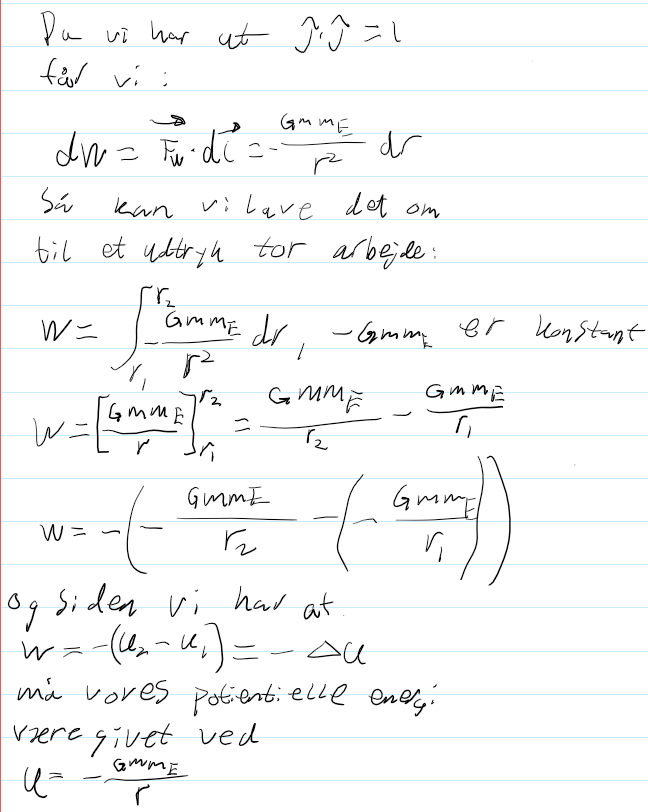 Da vi har at ĵ·ĵ = 1
får vi :
dW = F⃗w · dl⃗ = - GmmE/r² dr
Så kan vi lave det om
til et udtryk for arbejde:
W = ∫_{r1}^{r2} - GmmE/r² dr, -GmmE er konstant
W = [GmmE/r]_{r1}^{r2} = GmmE/r2 - GmmE/r1
W = -(- GmmE/r2 - (- GmmE/r1))
og siden vi har at
W = -(U2 - U1) = - ΔU
må vores potientielle energi
være givet ved
U = - GmmE/r